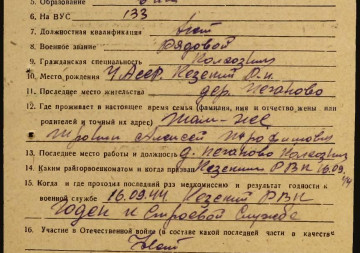 5. Образование
6. На ВУС 133
7. Должностная квалификация
8. Военное звание Рядовой
9. Гражданская специальность Колхозник
10. Место рождения УАССР. Кезский Р-н.
11. Последнее место жительства дер.
12. Где проживает в настоящее время семья (фамилия, имя и отчество жены или
родителей и точный их адрес) Там-же
Алексей Трофимович
13. Последнее место работы и должность д. Колхозник
14. Каким райгорвоенкоматом и когда призван Кезским РВК 16.09.44
15. Когда и где проходил последний раз медкомиссию и результат годности к
военной службе 16.09.44 Кезский РВК
Годен к Строевой Службе
16. Участие в Отечественной войне (в составе какой последней части в качестве